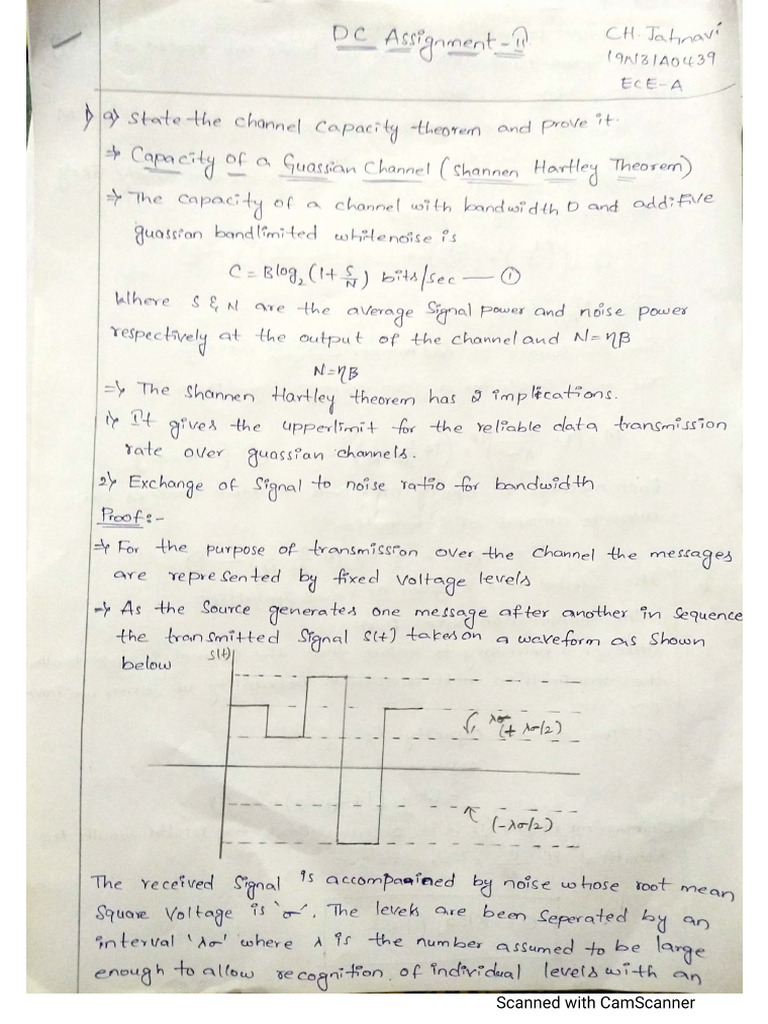 DC Assignment-II
CH. Jahnavi
19N31A0439
ECE-A
1) a) State the channel capacity theorem and prove it.
⇒ Capacity of a Guassian Channel (Shannen Hartley Theorem)
⇒ The capacity of a channel with bandwidth D and additive
guassian bandlimited whitenoise is
C = Blog₂(1+ S/N) bits/sec — ①
Where S & N are the average signal power and noise power
respectively at the output of the channel and N=ηB
N=ηB
⇒ The Shannen Hartley theorem has 2 implications.
1) It gives the upperlimit for the reliable data transmission
rate over guassian channels.
2) Exchange of Signal to noise ratio for bandwidth
Proof:-
⇒ For the purpose of transmission over the channel the messages
are represented by fixed voltage levels
⇒ As the Source generates one message after another in sequence
the transmitted signal s(t) takes on a waveform as shown
below
s(t)
λσ
(+ λσ/2)
(-λσ/2)
The received signal is accompanied by noise whose root mean
Square Voltage is 'σ'. The levels are been seperated by an
interval 'λσ' where λ is the number assumed to be large
enough to allow recognition of individual levels with an
Scanned with CamScanner